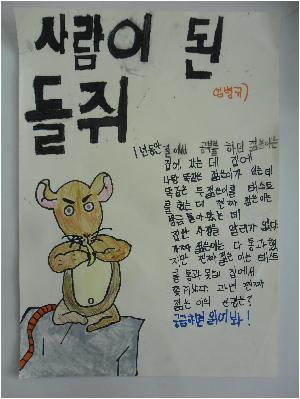 사람이 된
들쥐
1년동안 절에서 공부를 하던 젊은이는
집에 갔는데 집에
나랑 똑같은 젊은이가 있는데
똑같은 두 젊은이를 테스트
를 했는데 진짜 젊은이는
방금 돌아왔는데
집안 사정을 알리가 없다
가짜 젊은이는 다 통과했
지만 진짜 젊은이는 테스트
를 통과 못해 집에서
쫓겨났다 과연 진짜
젊은이의 운명은?
궁금하면 읽어봐!